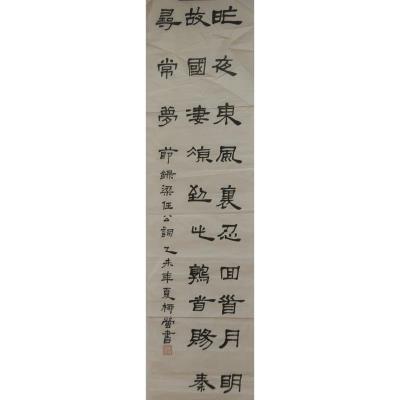 昨夜東風裏忍回首月明
故國凄涼到此鶉首賜秦
尋常夢
節錄梁任公詞乙未年夏書